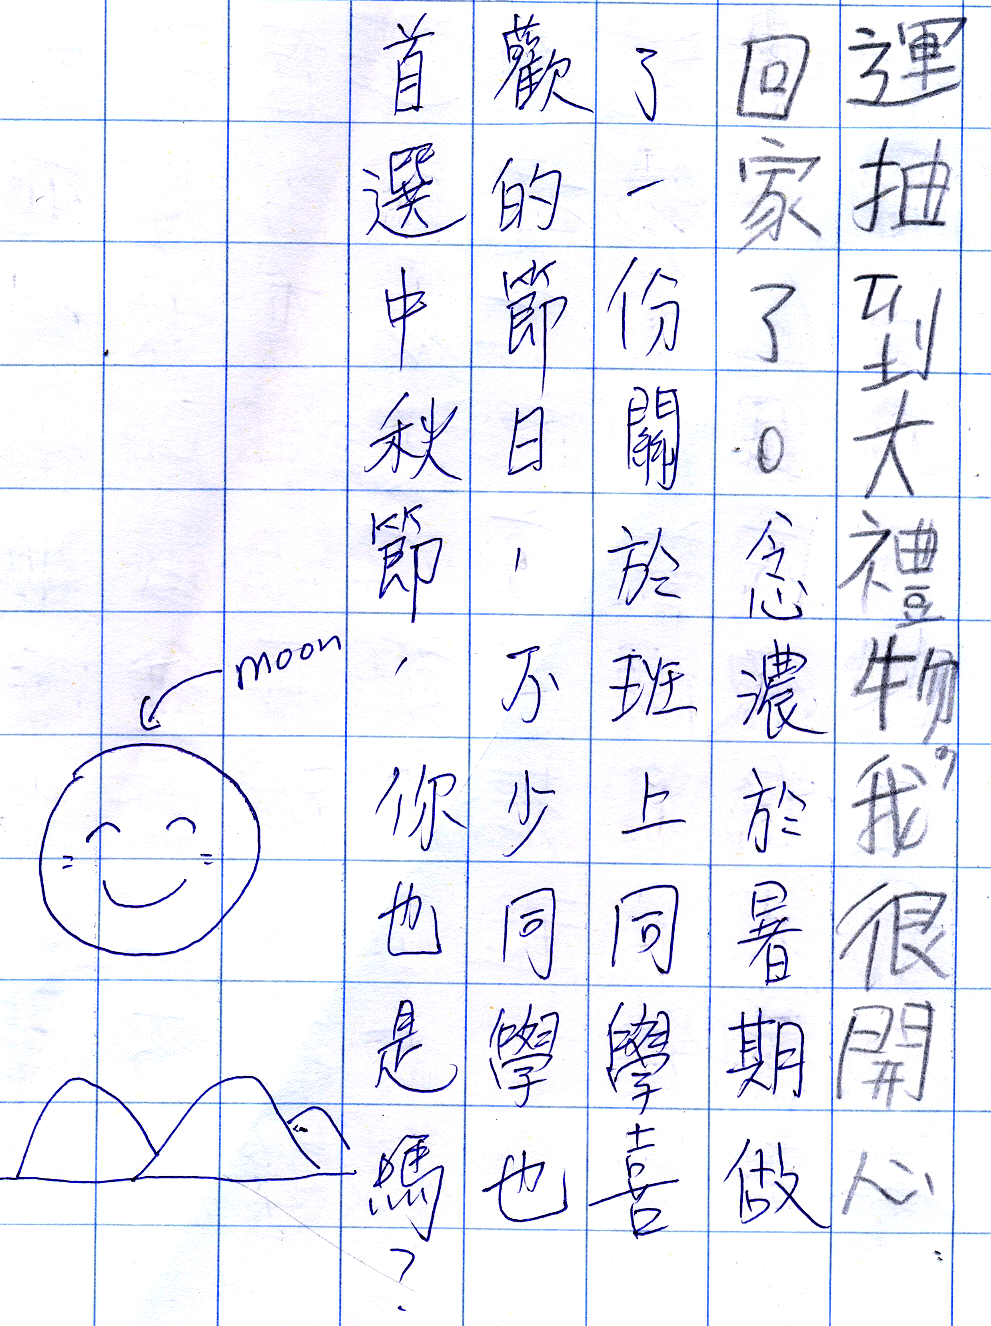 運抽到大禮物。我很開心
回家了。念濃於暑期做
了一份關於班上同學喜
歡的節日,不少同學也
首選中秋節,你也是嗎?
moon